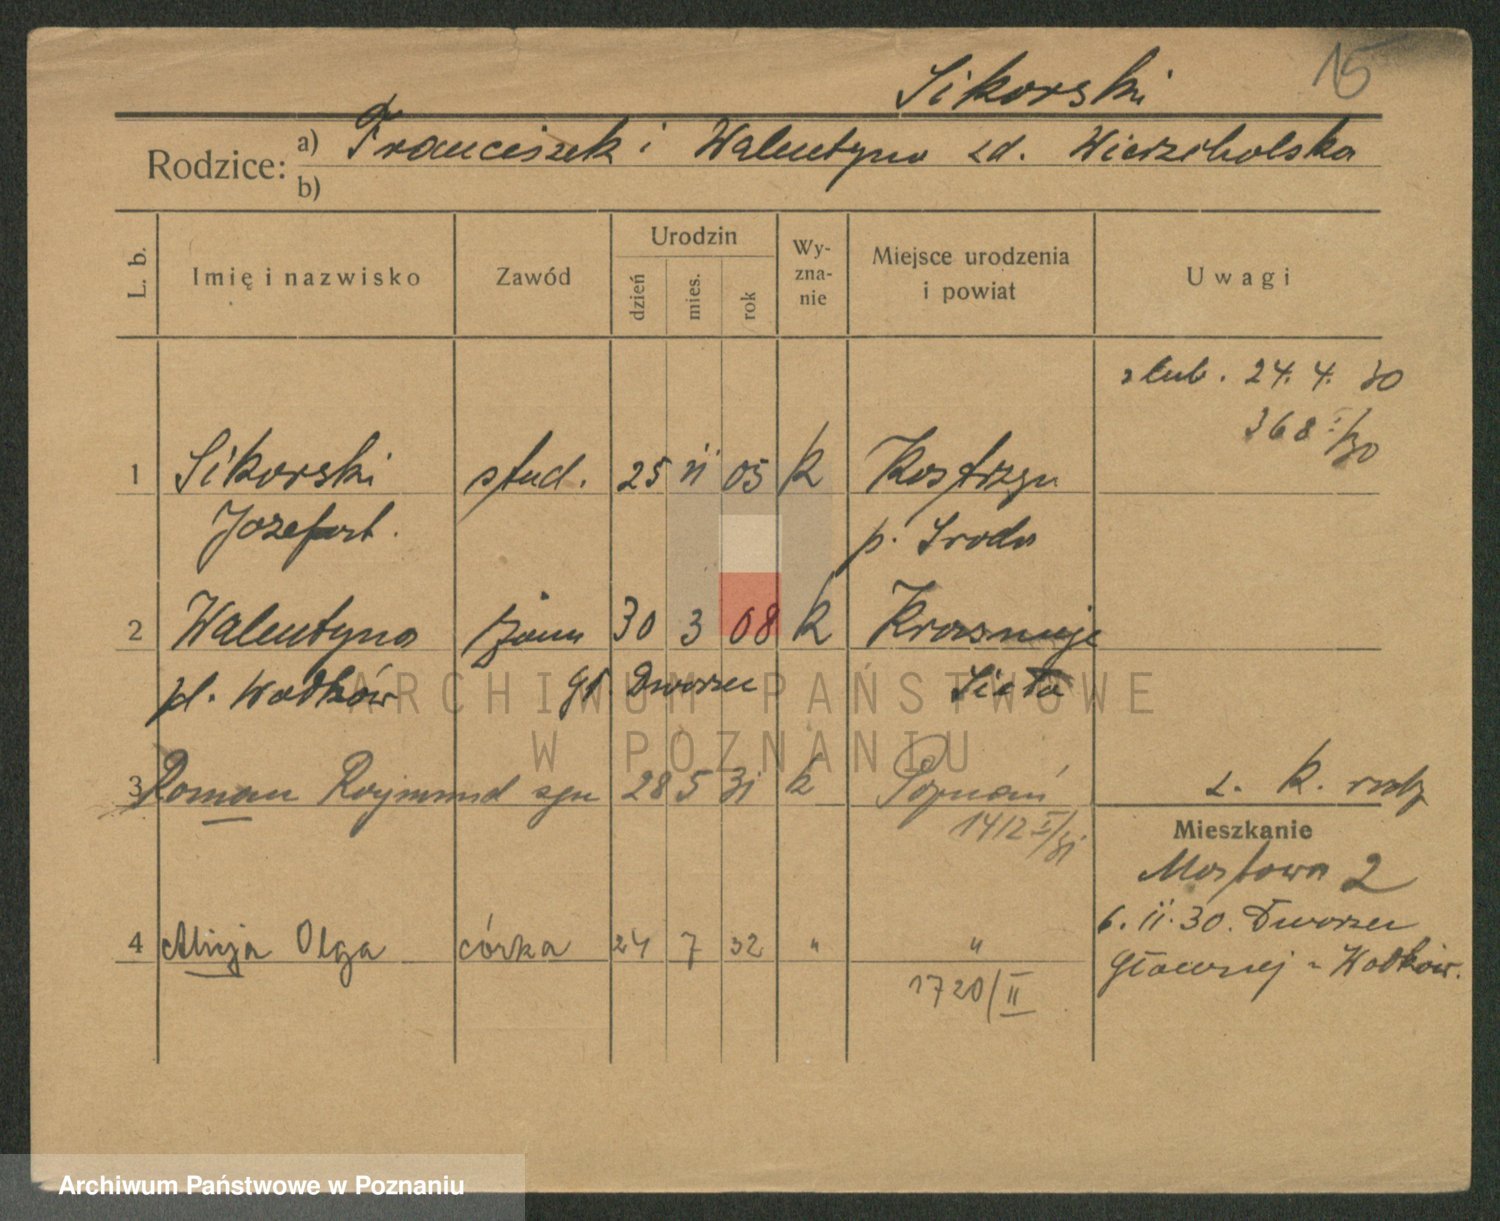 15
Sikorski
Rodzice: a) Franciszek i Walentyna zd. Wierzcholska
b)
L. b. Imię i nazwisko Zawód Urodzin dzień mies. rok Wy-zna-nie Miejsce urodzenia i powiat Uwagi
ślub. 24. 4. 30
368 I/30
1 Sikorski stud. 25 II 05 k Kostrzyn
Jozefat. p. Sroda
2 Walentyna żona 30 3 08 k
pł. Wodków gł. Dworzec
3 Roman Rajmund syn 28 5 31 k Poznań z. k.
1412 I/31
Mieszkanie
Mostowa 2
4 Alicja Olga córka 24 7 32 " "
6. II. 30. Dworzec
1720/II
Głównej - Wodków.
ARCHIWUM PAŃSTWOWE
W POZNANIU
Archiwum Państwowe w Poznaniu